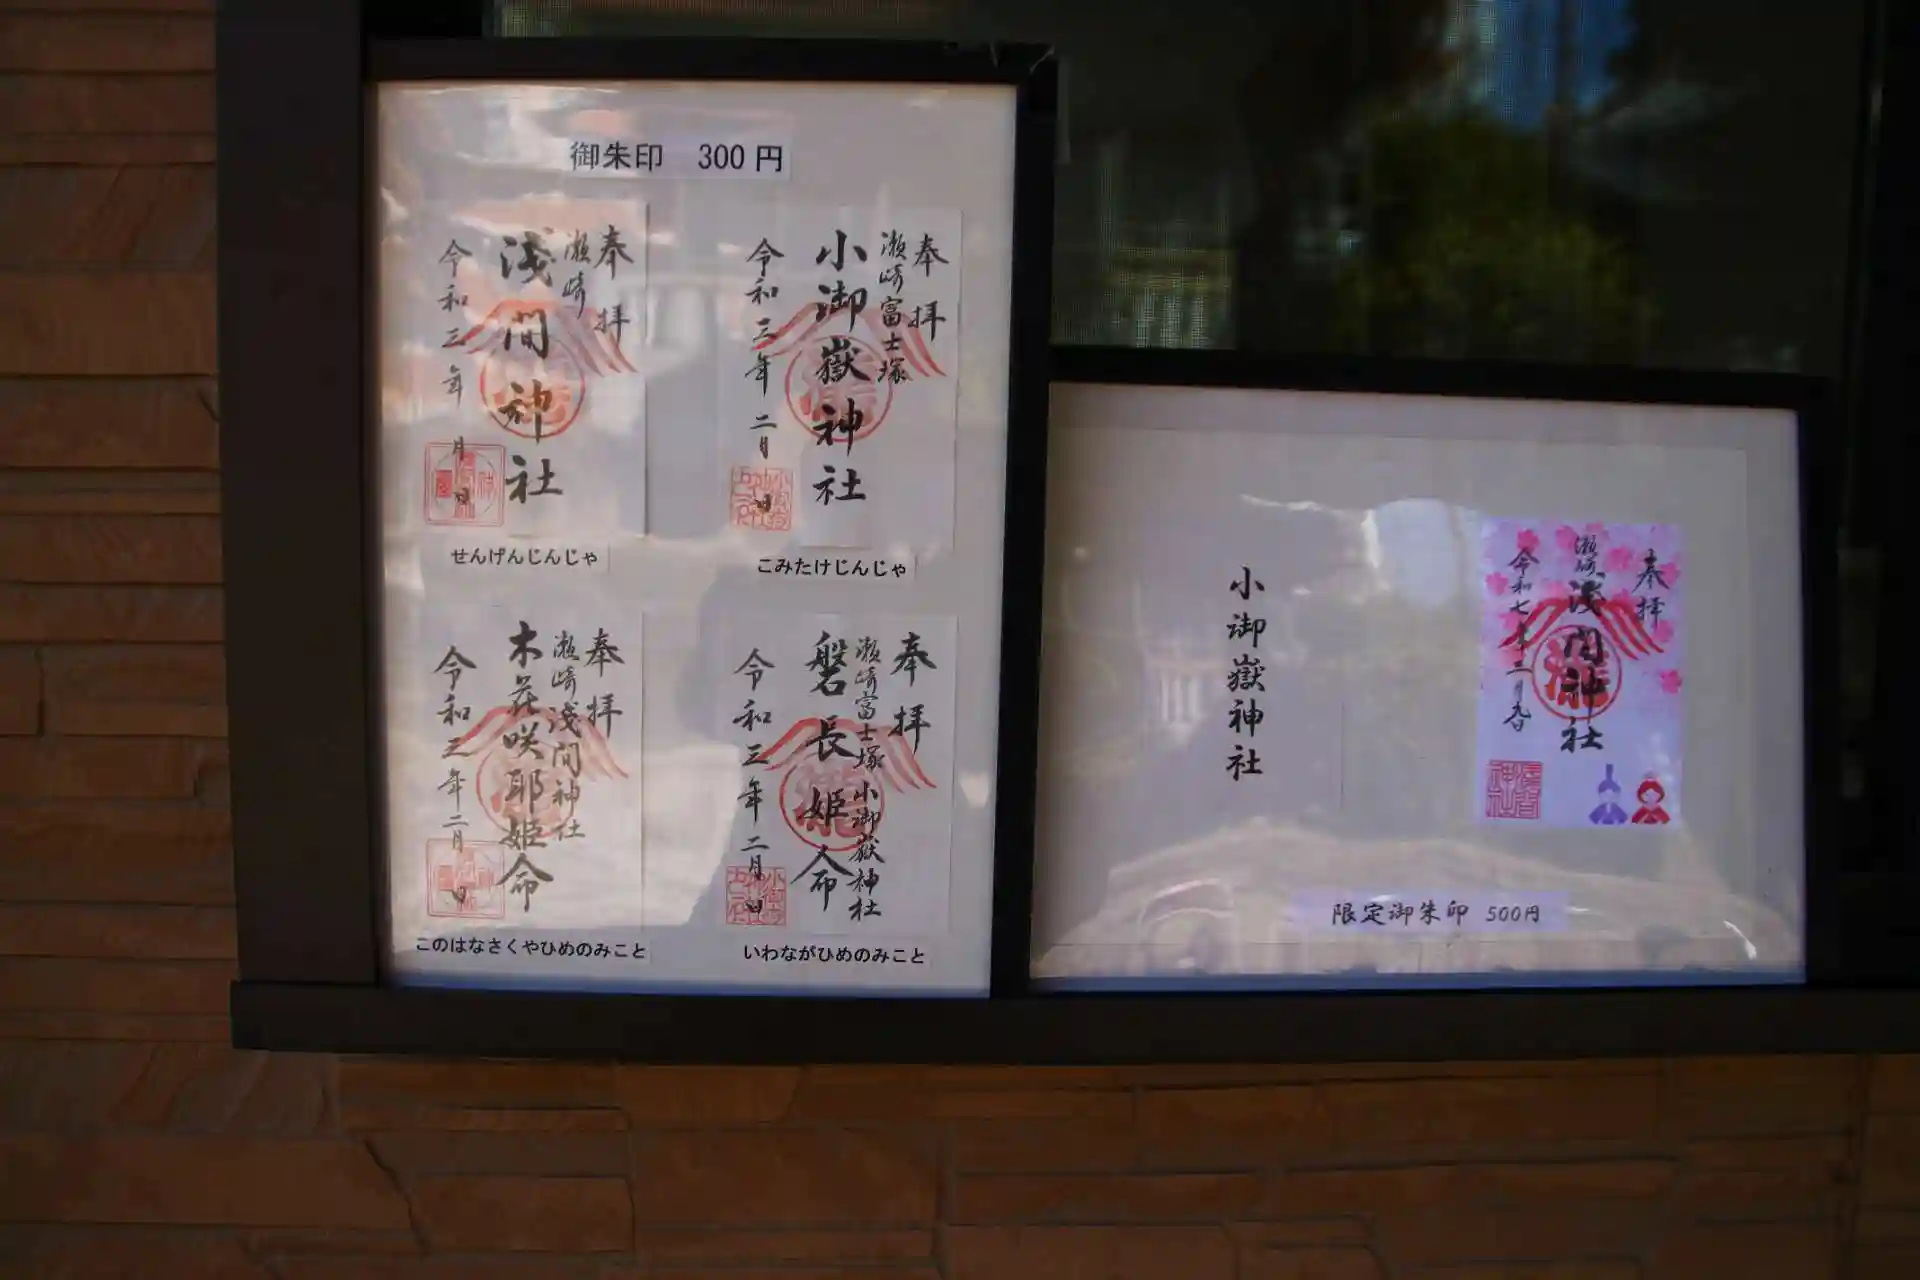 御朱印 300円
奉拝
瀬崎
浅間神社
令和三年 月 日
せんげんじんじゃ
奉拝
瀬崎富士塚
小御嶽神社
令和三年二月 日
こみたけじんじゃ
奉拝
瀬崎浅間神社
木花咲耶姫命
令和三年二月 日
このはなさくやひめのみこと
奉拝
瀬崎富士塚 小御嶽神社
磐長姫命
令和三年二月 日
いわながひめのみこと
小御嶽神社
奉拝
瀬崎
浅間神社
令和七年二月九日
限定御朱印 500円